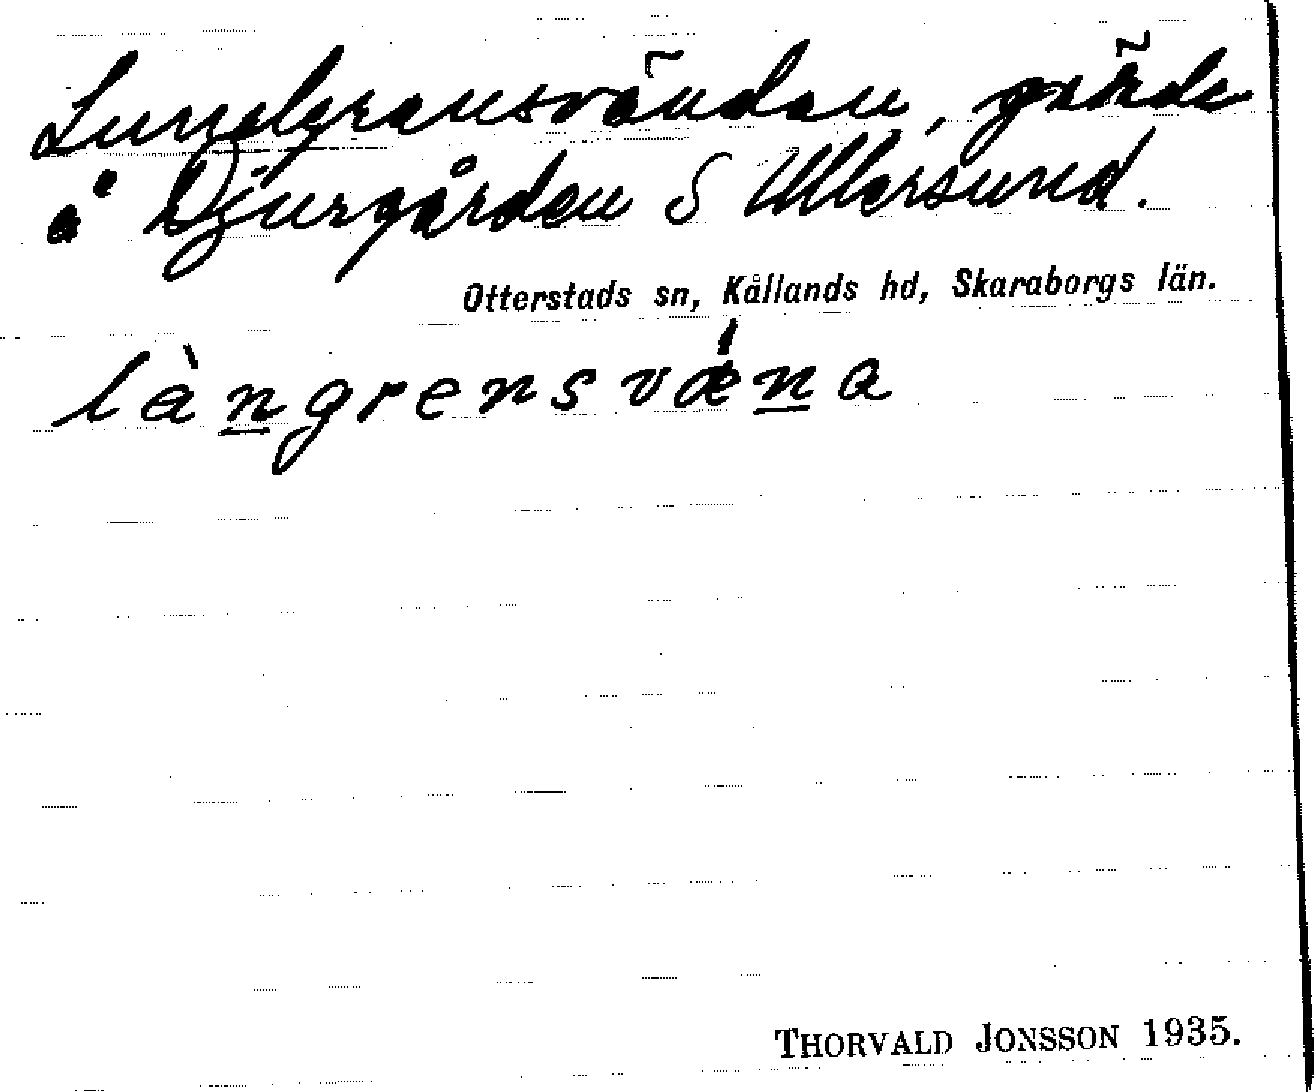 Lundgrensvändan, gärde
å Djurgården S Ullersund.
Otterstads sn, Kållands hd, Skaraborgs län.
làn̲grensvǽn̲a
THORVALD JONSSON 1935.